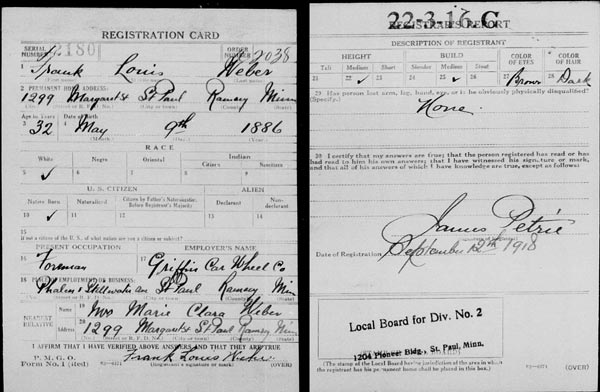 REGISTRATION CARD
SERIAL NUMBER 2180 ORDER NUMBER 2038
1 Frank Louis Weber
2 PERMANENT HOME ADDRESS:
1299 Margaret St Paul Ramsey Minn
Age in Years Date of Birth
3 32 4 May 9th 1886
RACE
White Negro Oriental Indian
Citizen Noncitizen
5 ✓ 6 7 8 9
U. S. CITIZEN ALIEN
Native Born Naturalized Citizen by Father's Naturalization Before Registrant's Majority Declarant Non-declarant
10 ✓ 11 12 13 14
15
If not a citizen of the U. S., of what nation are you a citizen or subject?
PRESENT OCCUPATION EMPLOYER'S NAME
16 Forman 17 Griffin Car Wheel Co
18 PLACE OF EMPLOYMENT OR BUSINESS:
Phalen & Stillwater Ave St Paul Ramsey Min
NEAREST RELATIVE
Name 19 Mrs Marie Clara Weber
Address 20 1299 Margaret St Paul Ramsey Minn
I AFFIRM THAT I HAVE VERIFIED ABOVE ANSWERS AND THAT THEY ARE TRUE
P. M. G. O.
Form No. 1 (Red) Frank Louis Weber
(Registrant's signature or mark) (OVER)
22-3-16 C
REGISTRAR'S REPORT
DESCRIPTION OF REGISTRANT
HEIGHT BUILD COLOR OF EYES COLOR OF HAIR
Tall Medium Short Slender Medium Stout
21 22 ✓ 23 24 25 ✓ 26 27 Brown 28 Dark
29 Has person lost arm, leg, hand, eye, or is he obviously physically disqualified?
(Specify.)
None.
30 I certify that my answers are true; that the person registered has read or has
had read to him his own answers; that I have witnessed his signature or mark,
and that all of his answers of which I have knowledge are true, except as follows:
James Petrie
Date of Registration September 12th 1918
Local Board for Div. No. 2
1204 Pioneer Bldg., St. Paul, Minn.
(The stamp of the Local Board having jurisdiction of the area in which
the registrant has his permanent home shall be placed in this box.)
(OVER)